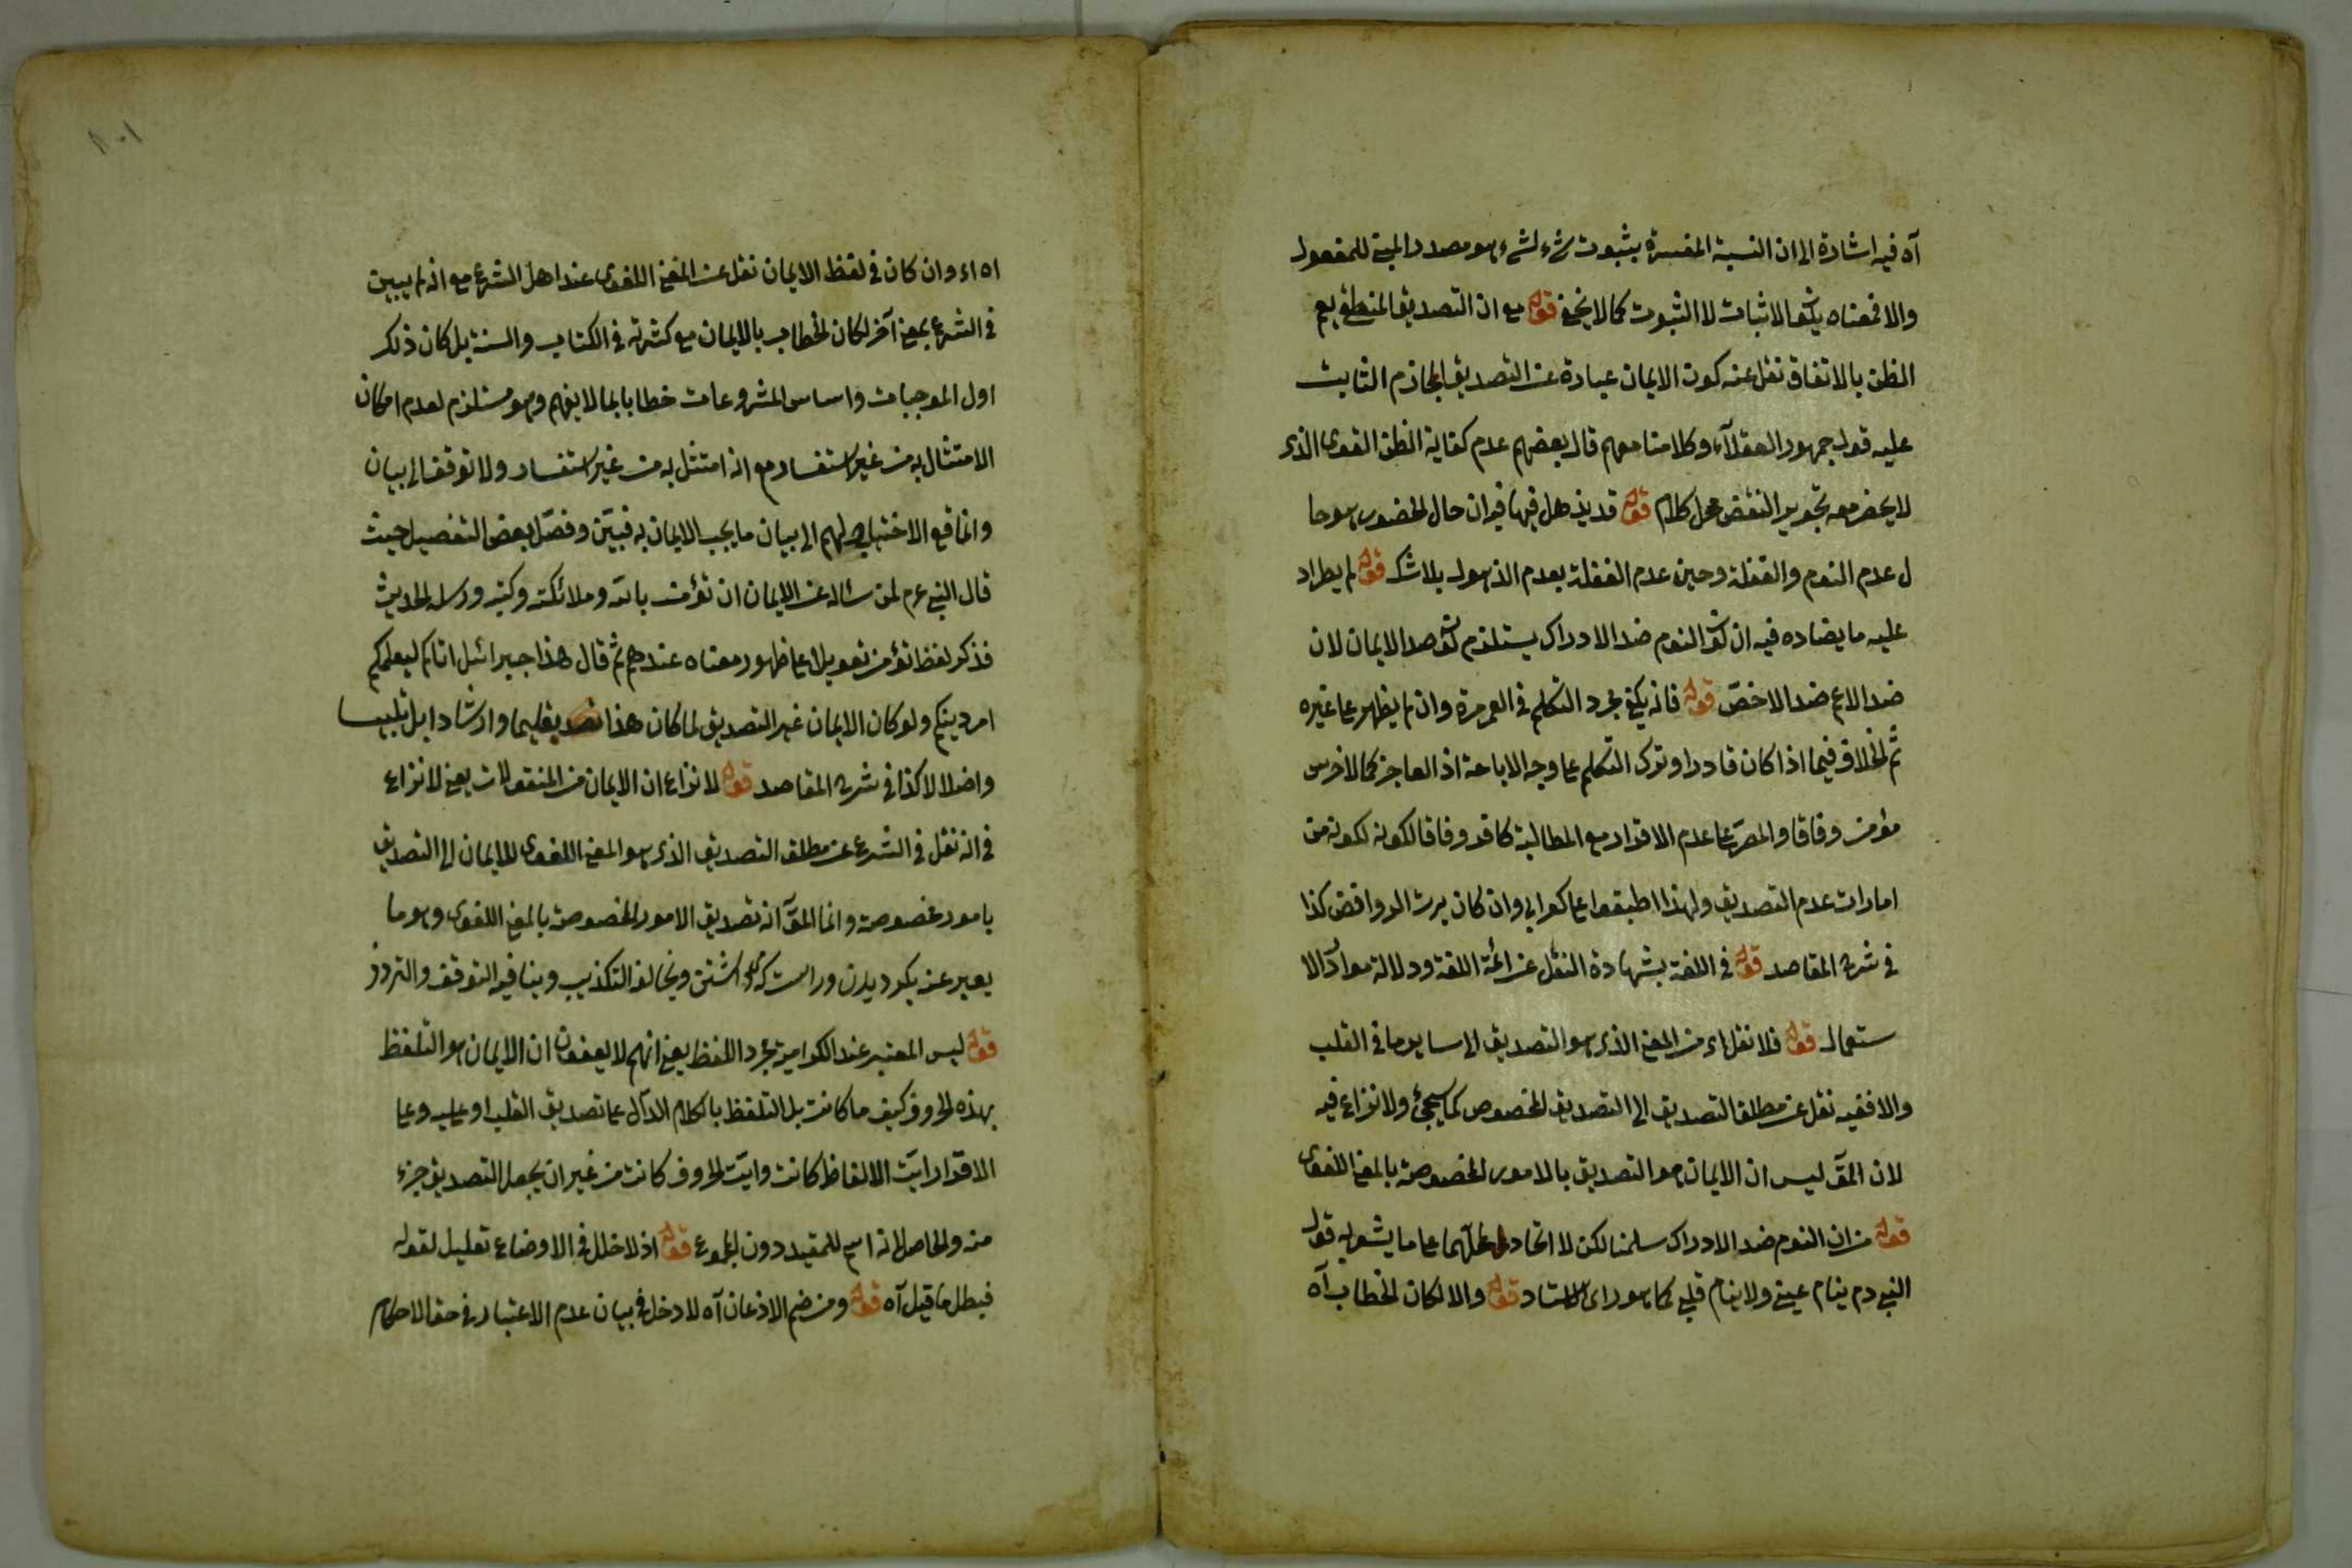 آه فيه اشارة الى ان النسبة المفسرة بثبوت شىء لشىء هو مصدر المبنى للمفعول
والا فمعناه الاثبات لا الثبوت كما لا يخفى قوله مع ان التصديق المنطقى يعم
الظن بالاتفاق نقل عنه كون الايمان عبارة عن التصديق الجازم الثابت
عليه قول جمهور العقلاء وكلامنا معهم قال بعضهم عدم كفاية الظن القوى الذى
لا يخطر معه تجويز النقض محل كلام قوله قد يذهل فيها فيه ان حال الحضور هو حا
ل عدم النوم والغفلة وحين عدم الغفلة يعدم الذهول بلا شك قوله لم يطراء
عليه ما يضاده فيه ان كون النوم ضد الادراك يستلزم كونه ضد الايمان لان
ضد الاعم ضد الاخصّ قوله فانه يكفى مجرد التكلم فى العمر مرة وان لم يظهر على غيره
ثم الخلاف فيما اذا كان قادرا وترك التكلم على وجه الاباحة اذ العاجز كالاخرس
مؤمن وفاقا والمصرّ على عدم الاقرار مع المطالبة كافر وفاقا لكونه لكونه من
امارات عدم التصديق ولهذا اطبقوا على كفر ابى وان كان الروافض كذا
فى شرح المقاصد قوله فى اللغة بشهادة النقل عن ائمة اللغة ودلالة موارد الا
ستعمال قوله فلا نقل اى من المعنى الذى هو التصديق الى ساير ما فى القلب
والا ففيه نقل عن مطلق التصديق الى التصديق المخصوص كما سيجئ ولا نزاع فيه
لان المق ليس ان الايمان هو التصديق بالامور المخصوصة بالمعنى اللغوى
قوله من ان النوم ضد الادراك سلمنا لكن لا اتحاد محلهما على ما يشعر به قول
النبى دم ينام عينى ولا ينام قلبى كما هو راى الاستاد قوله والا لكان الخطاب آه
اه اى وان كان فى لفظ الايمان نقل عن المعنى اللغوى عند اهل الشرع مع انه لم يبين
فى الشرع بمعنى آخر لكان الخطاب بالايمان مع كثرته فى الكتاب والسنة بل كان ذلك
اول الموجبات واساس المشروعات خطابا بما لا يفهم وهو مستلزم لعدم امكان
الامتثال به من غير استفسار مع انه امتثل به من غير استفسار ولا توقف الى بيان
وانما وقع الاختياج لهم الى بيان ما يجب الايمان به فبيّن وفصّل بعض التفصيل حيث
قال النبى عم لمن سئاله عن الايمان ان تؤمن بالله وملائكته وكتبه ورسله الحديث
فذكر لفظ تؤمن تعويلا على ظهور معناه عندهم ثم قال هذا جبرائيل اتاكم ليعلمكم
امر دينكم ولو كان الايمان غير التصديق لما كان هذا تعليما وارشادا بل تلبيسا
واضلالا كذا فى شرح المقاصد قوله لا نزاع ان الايمان من المنقولات يعنى لا نزاع
فى انه نقل فى الشرع عن مطلق التصديق الذى هو المعنى اللغوى للايمان الى التصديق
بامور مخصوصة وانما المق انه تصديق الامور المخصوصة بالمعنى اللغوى وهو ما
يعبر عنه بكرويدن وراست كوى داشتن ويخالفه التكذيب وينافيه التوقف والتردد
قوله ليس المعتبر عند الكرامية مجرد اللفظ يعنى انهم لا يعنون ان الايمان هو التلفظ
بهذه الحروف كيف ما كانت بل التلفظ بالكلام الدال على تصديق القلب او عليه وعلى
الاقرار ايّت الالفاظ كانت وايّت الحروف كانت من غير ان يجعل التصديق جزء
منه والحاصل انه اسم للمقيد دون المجموع قوله اذ لا خلل فى الاوضاع تعليل لقوله
فبطل ما قيل آه قوله ومن ضم الاذعان آه لا دخل فى بيان عدم الاعتبار فى حق الاحكام